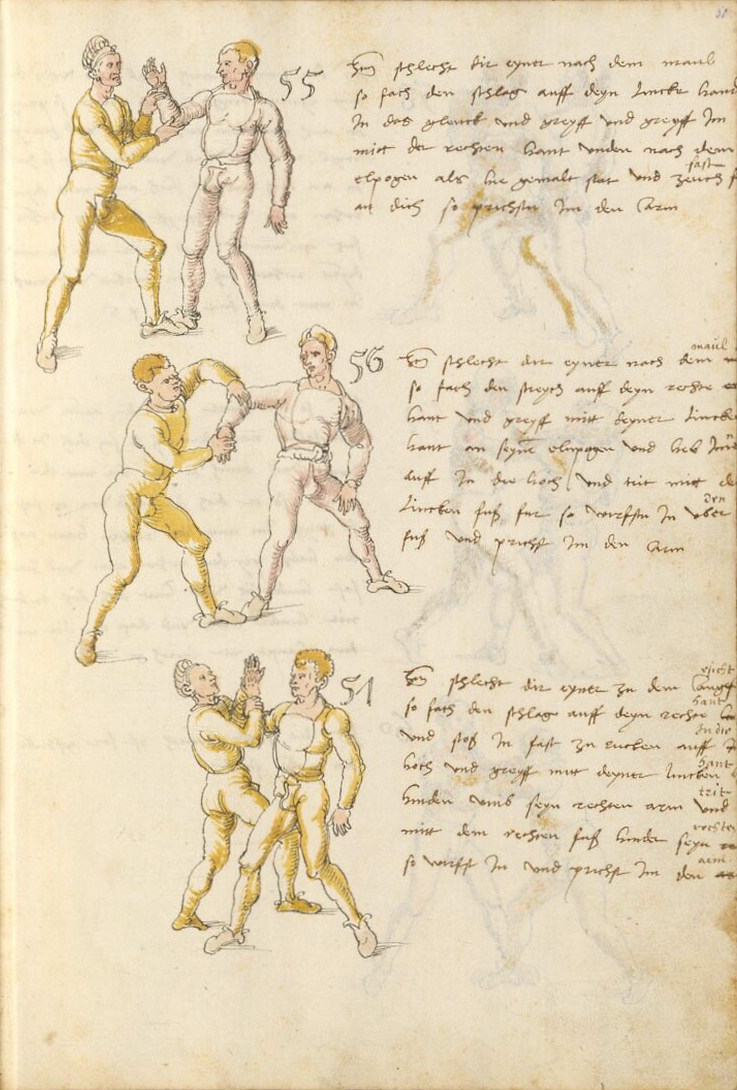 55
Item schlecht dir eyner nach dem maul
so fach den schlag auff deyn lincke hant
In das glenck und greyff und greyff Im
mitt der rechten hant unden nach dem
fast
elpogen als hie gemalt stat und zeuch
an dich so prichstu Im den Arm
56
maul
Item schlecht dir eyner nach dem
so fach den streych auff deyn rechte
hant und greyff mitt deyner lincken
hant an seyne elnpogen und heb
auff In die hoch und trit mitt
den
lincken fuß fur so wirffstu In uber
fuß und prichst Im den Arm
57
gsicht
Item schlecht dir eyner zu dem
hant
so fach den schlag auff deyn rechte
In die
und stoß In fast zu rucken auff
hant
hoch und greyff mitt deyner lincken
hinden umb seyn rechten arm und
trit
mitt dem rechten fuß hinder seyn
rechten
arm
so wirfft In und prichst Im den